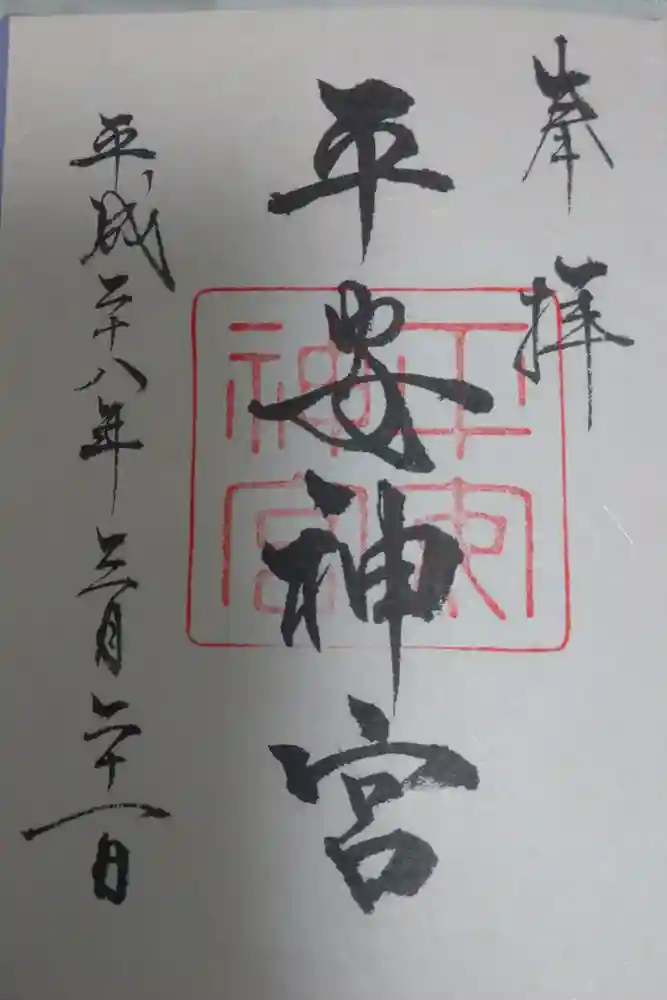 奉拝
平安神宮
平安神宮
平成二十八年三月二十一日